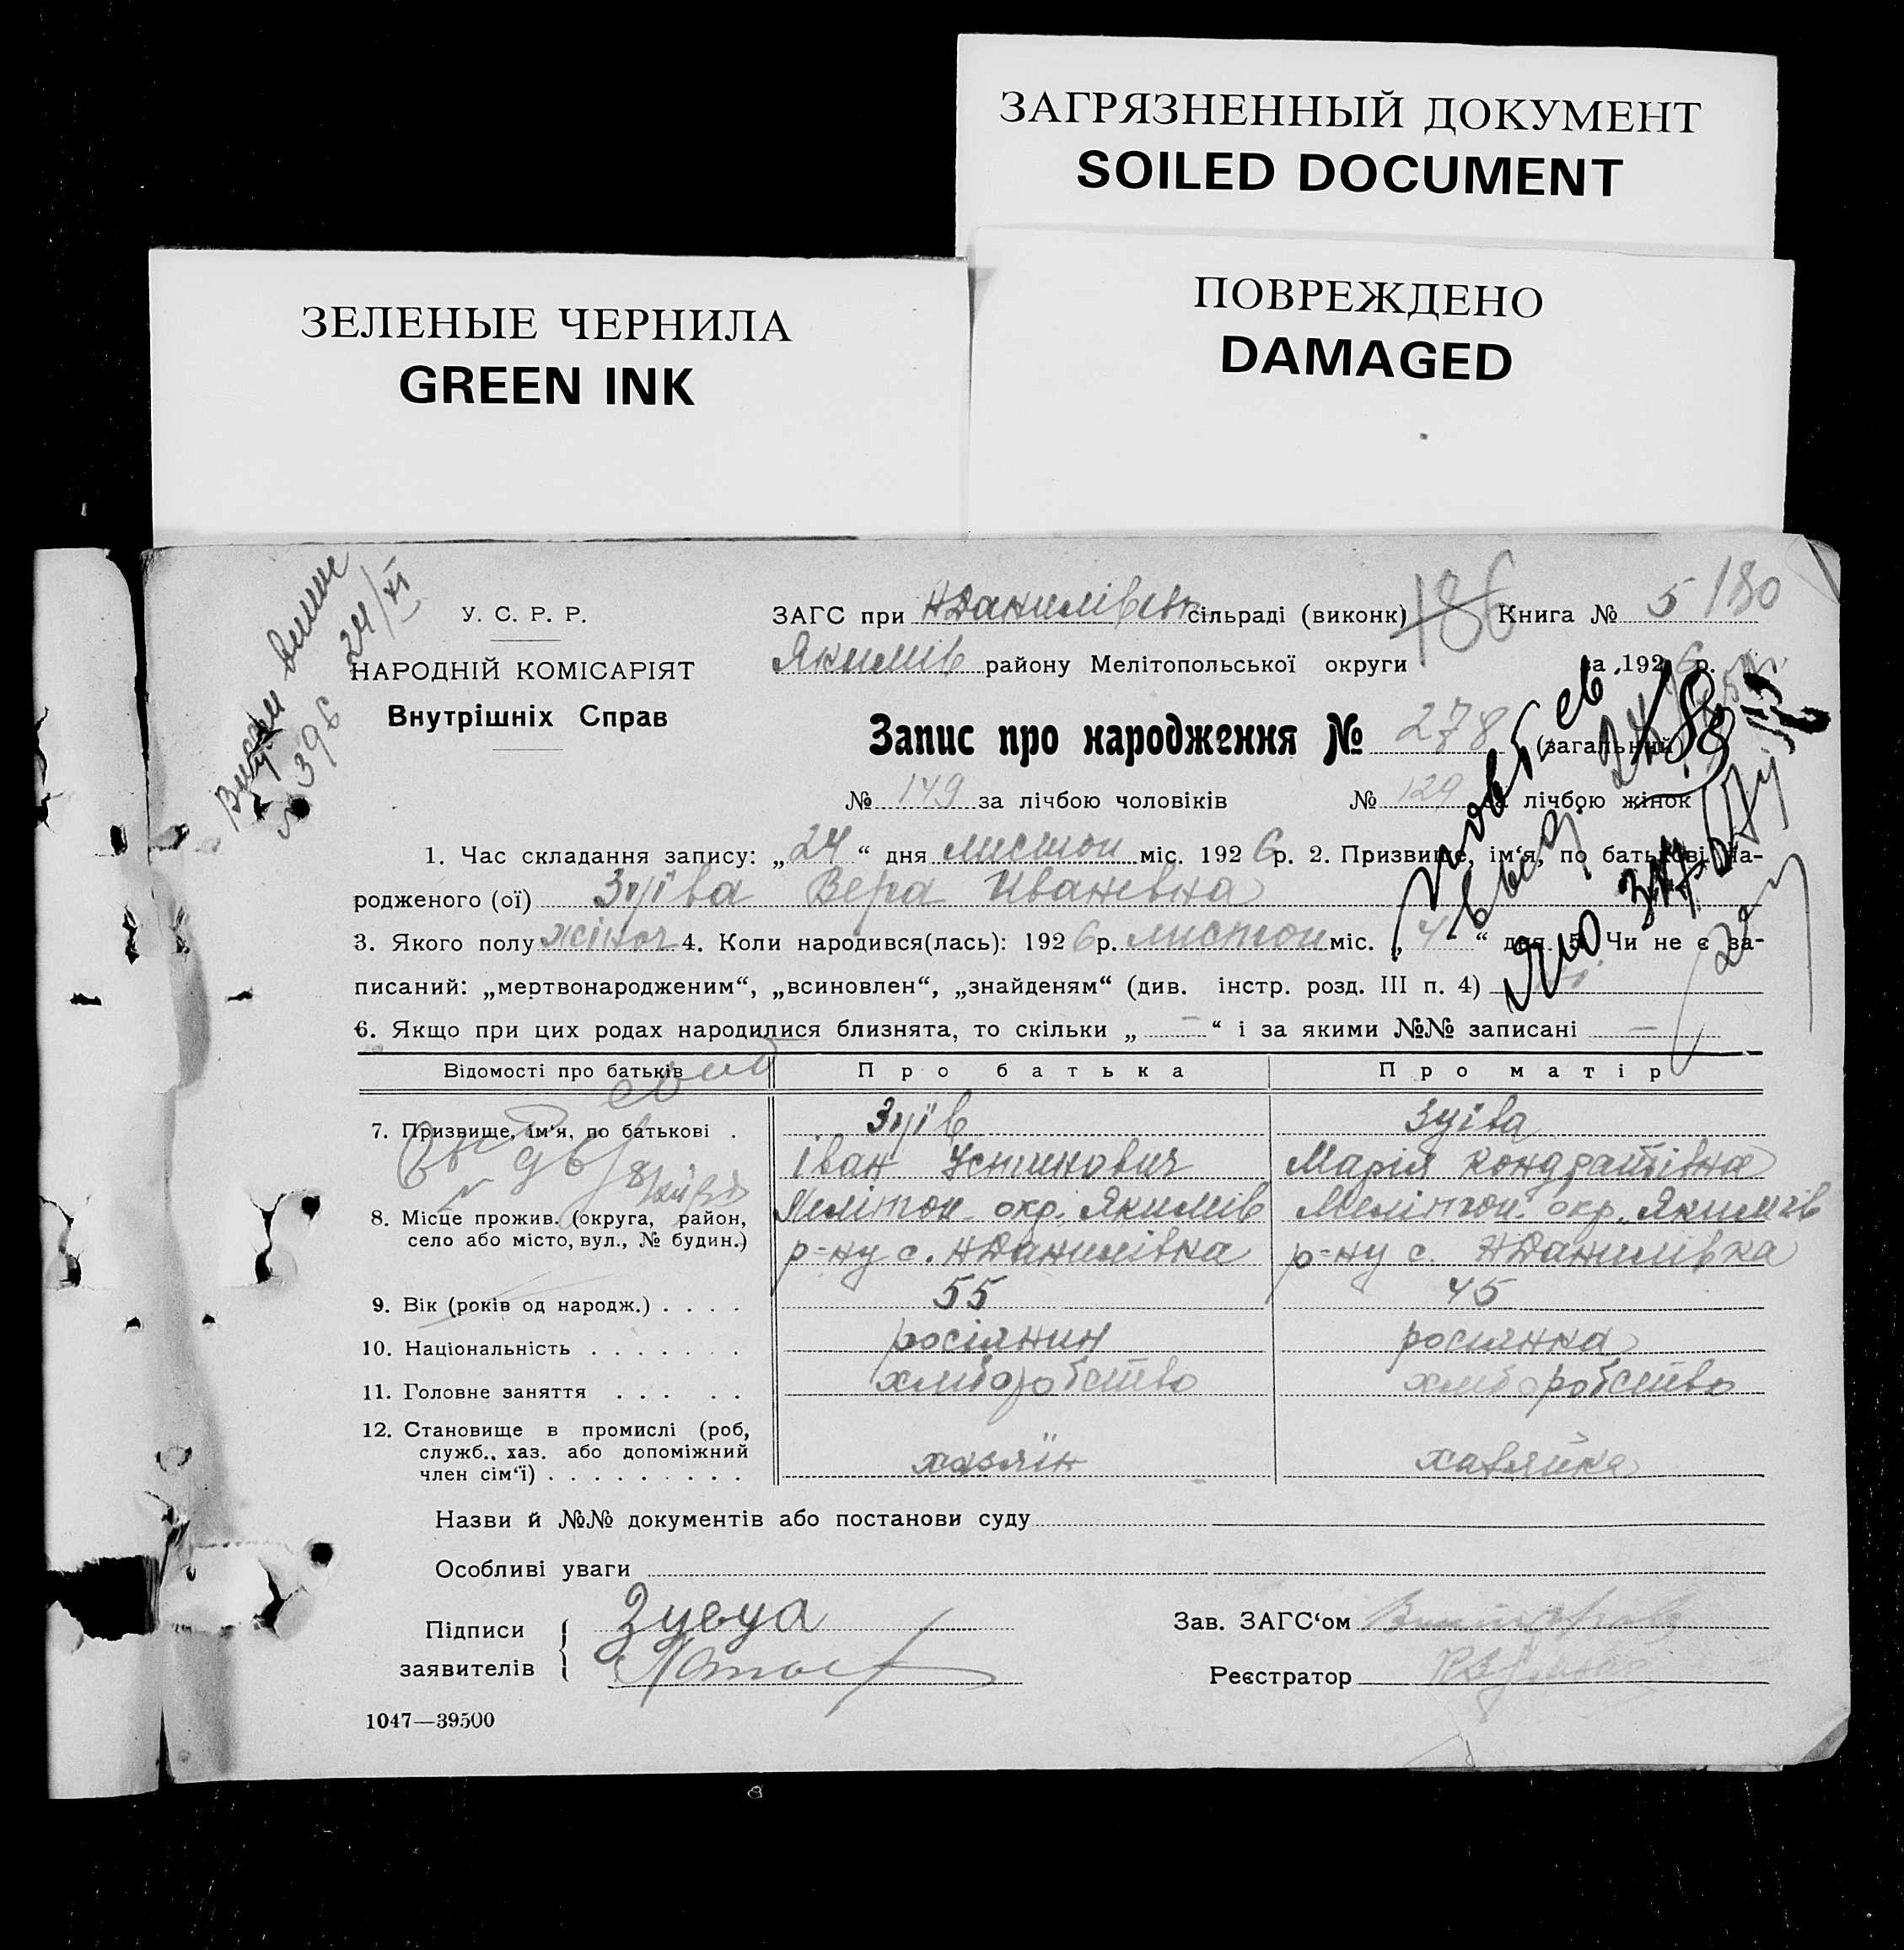 ЗАГРЯЗНЕННЫЙ ДОКУМЕНТ
SOILED DOCUMENT
ЗЕЛЕНЫЕ ЧЕРНИЛА
GREEN INK
ПОВРЕЖДЕНО
DAMAGED
24/XI
№ 396
У. С. Р. Р.
НАРОДНІЙ КОМІСАРІЯТ
Внутрішніх Справ
ЗАГС при НДанилівськ сільраді (виконк) 186 Книга № 5 180
Якимів району Мелітопольської округи за 1926 р.
Запис про народження № 278 (загальний)
№ 149 за лічбою чоловіків № 129 за лічбою жінок
1. Час складання запису: „24“ дня листоп міс. 1926 р. 2. Призвище, ім‘я, по батькові на-
родженого (ої) Зуїва Вера Иваневна
3. Якого полу жіноч 4. Коли народився(лась): 1926 р. листоп міс. „4“ дня. 5. Чи не є за-
писаний: „мертвонародженим“, „всиновлен“, „знайденям“ (див. інстр. розд. III п. 4)
6. Якщо при цих родах народилися близнята, то скільки „ — “ і за якими №№ записані —
Відомості про батьків Про батька Про матір
7. Призвище, ім‘я, по батькові . Зуїв Зуіва
Іван Устинович Марія Кондратівна
8. Місце прожив. (округа, район, Мелітоп. окр. Якимів Мелітоп. окр. Якимів
село або місто, вул., № будин.) р-ну с. НДанилівка р-ну с. НДанилівка
9. Вік (років од народж.) . . . . 55 45
10. Національність . . . . . . . росіянин росиянка
11. Головне заняття . . . . . хліборобство хліборобство
12. Становище в промислі (роб,
служб., хаз. або допоміжний
член сім‘ї) . . . . . . . . . хазяїн хазяйка
Назви й №№ документів або постанови суду
Особливі уваги
Підписи
заявителів
Зав. ЗАГС‘ом
Реєстратор
1047—39500